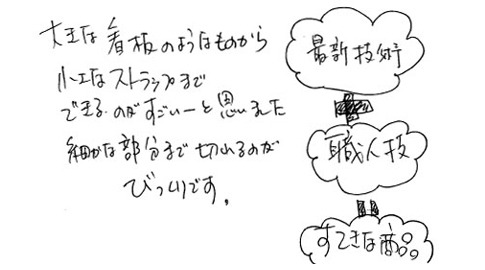 大きな看板のようなものから
小さなストラップまで
できるのがすごいーと思いました
細かな部分まで切れるのが
びっくりです。
最新技術
職人技
すてきな商品。